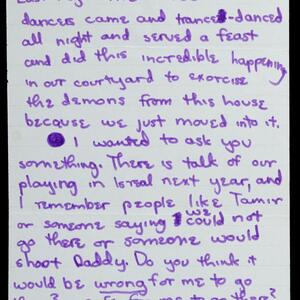 dancers came and trance-danced
all night and served a feast
and did this incredible happening
in our courtyard to exorcise
the demons from this house
because we just moved into it.
I wanted to ask you
something. There is talk of our
playing in Isreal next year, and
I remember people like Tamir
or someone saying we could not
go there or someone would
shoot Daddy. Do you think it
would be wrong for me to go